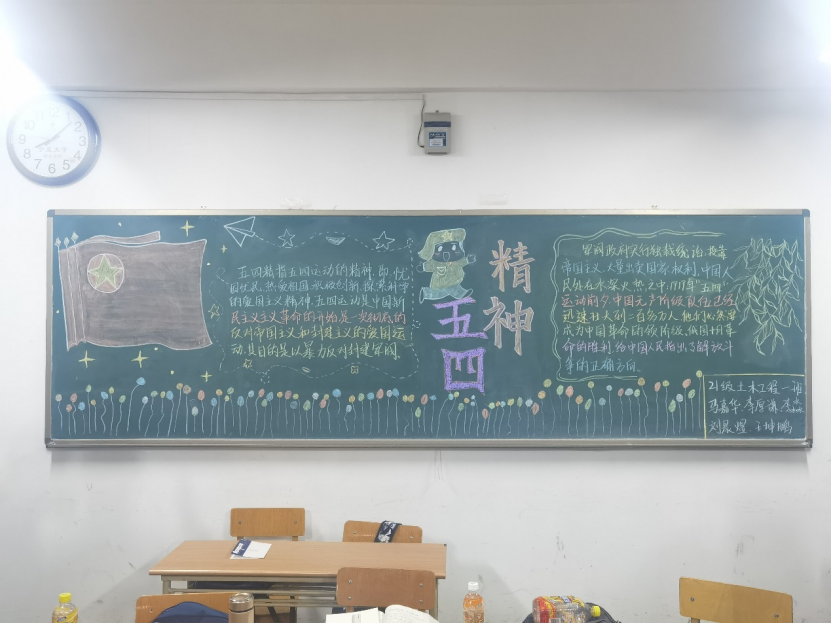 五四精指五四运动的精神，即，忧
国忧民，热爱祖国，积极创新，探索科学
的爱国主义精神，五四运动是中国新
民主主义革命的开始是一次彻底的
反对帝国主义和封建主义的爱国运
动，其目的是以暴力反对封建军阀.
精神
五四
军阀政府实行独裁统治，投靠
帝国主义，大量出卖国家权利，中国人
民处在水深火热之中.1919年"五四"
运动前夕，中国无产阶级队伍已经
迅速壮大到一百多万人，他们
成为中国革命的领导阶级，
命的胜利，给中国人民指出了解放斗
争的正确方向.
21级土木工程一班
刘晨煜 坤鹏
10
2
9
3
8
4
7
6
5